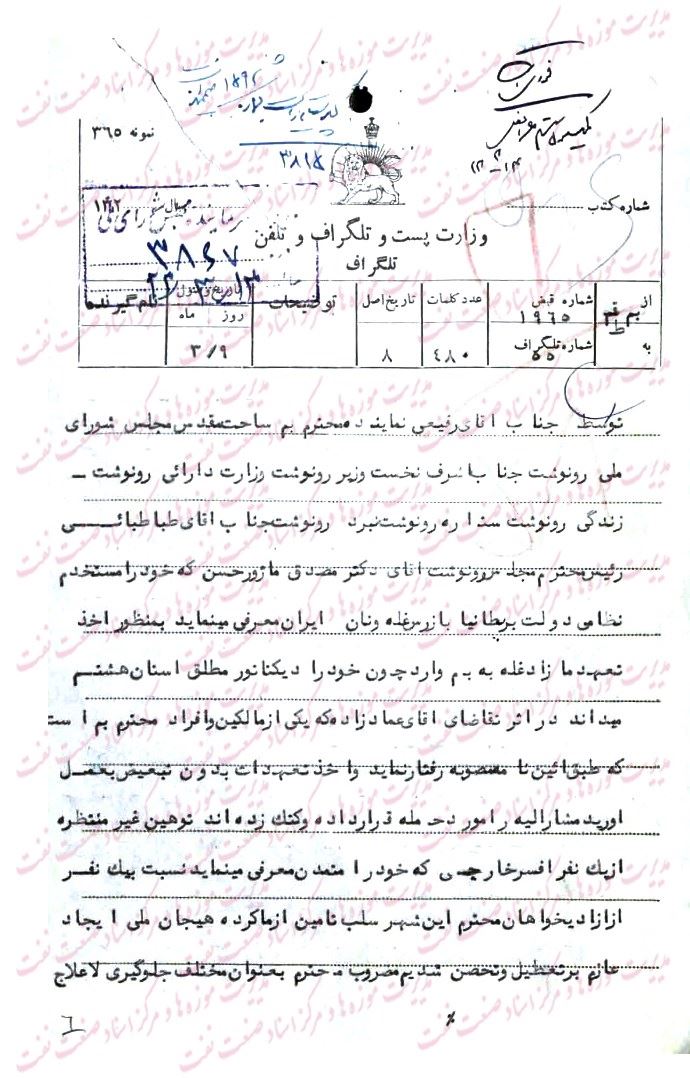 فوری
۳۸۱۵
نمونه ۳۶۵
شماره کتاب
نماینده مجلس شورای ملی
۳۸۶۷
وزارت پست و تلگراف و تلفن
تلگراف
از بم شماره قبض ۱۹۶۵ عدد کلمات تاریخ اصل توضیحات تاریخ وصول نام گیرنده
روز ماه
به ط شماره تلگراف ۵۵ ۴۸۰ ۸ ۳/۹
توسط جناب اقای رفیعی نماینده محترم بم ساحت مقدس مجلس شورای
ملی رونوشت جناب اشرف نخست وزیر رونوشت وزارت دارائی رونوشت ــ
زندگی رونوشت ستاره رونوشت نبرد رونوشت جناب اقای طباطبائی
رئیس محترم مجلس رونوشت اقای دکتر مصدق ماژور حسن که خود را مستخدم
نظامی دولت بریطانیا بازرس غله و نان ایران معرفی مینماید بمنظور اخذ
تعهد مازاد غله به بم وارد چون خود را دیکتاتور مطلق استان هشتم
میداند در اثر تقاضای اقای عماد زاده که یکی از مالکین و افراد محترم بم است
که طبق ائین نامه مصوبه رفتار نماید و اخذ تعهدات بدون تبعیض بعمل
اورید مشارالیه را مورد حمله قرار داده و کتک زده اند توهین غیر منتظره
از یک نفر افسر خارجی که خود را متمدن معرفی مینماید نسبت بیک نفر
از ازادیخواهان محترم این شهر سلب تامین از ما کرده هیجان ملی ایجاد
عازم بر تعطیل و تحصن شدیم مضروب محترم بعنوان مختلف جلوگیری لاعلاج